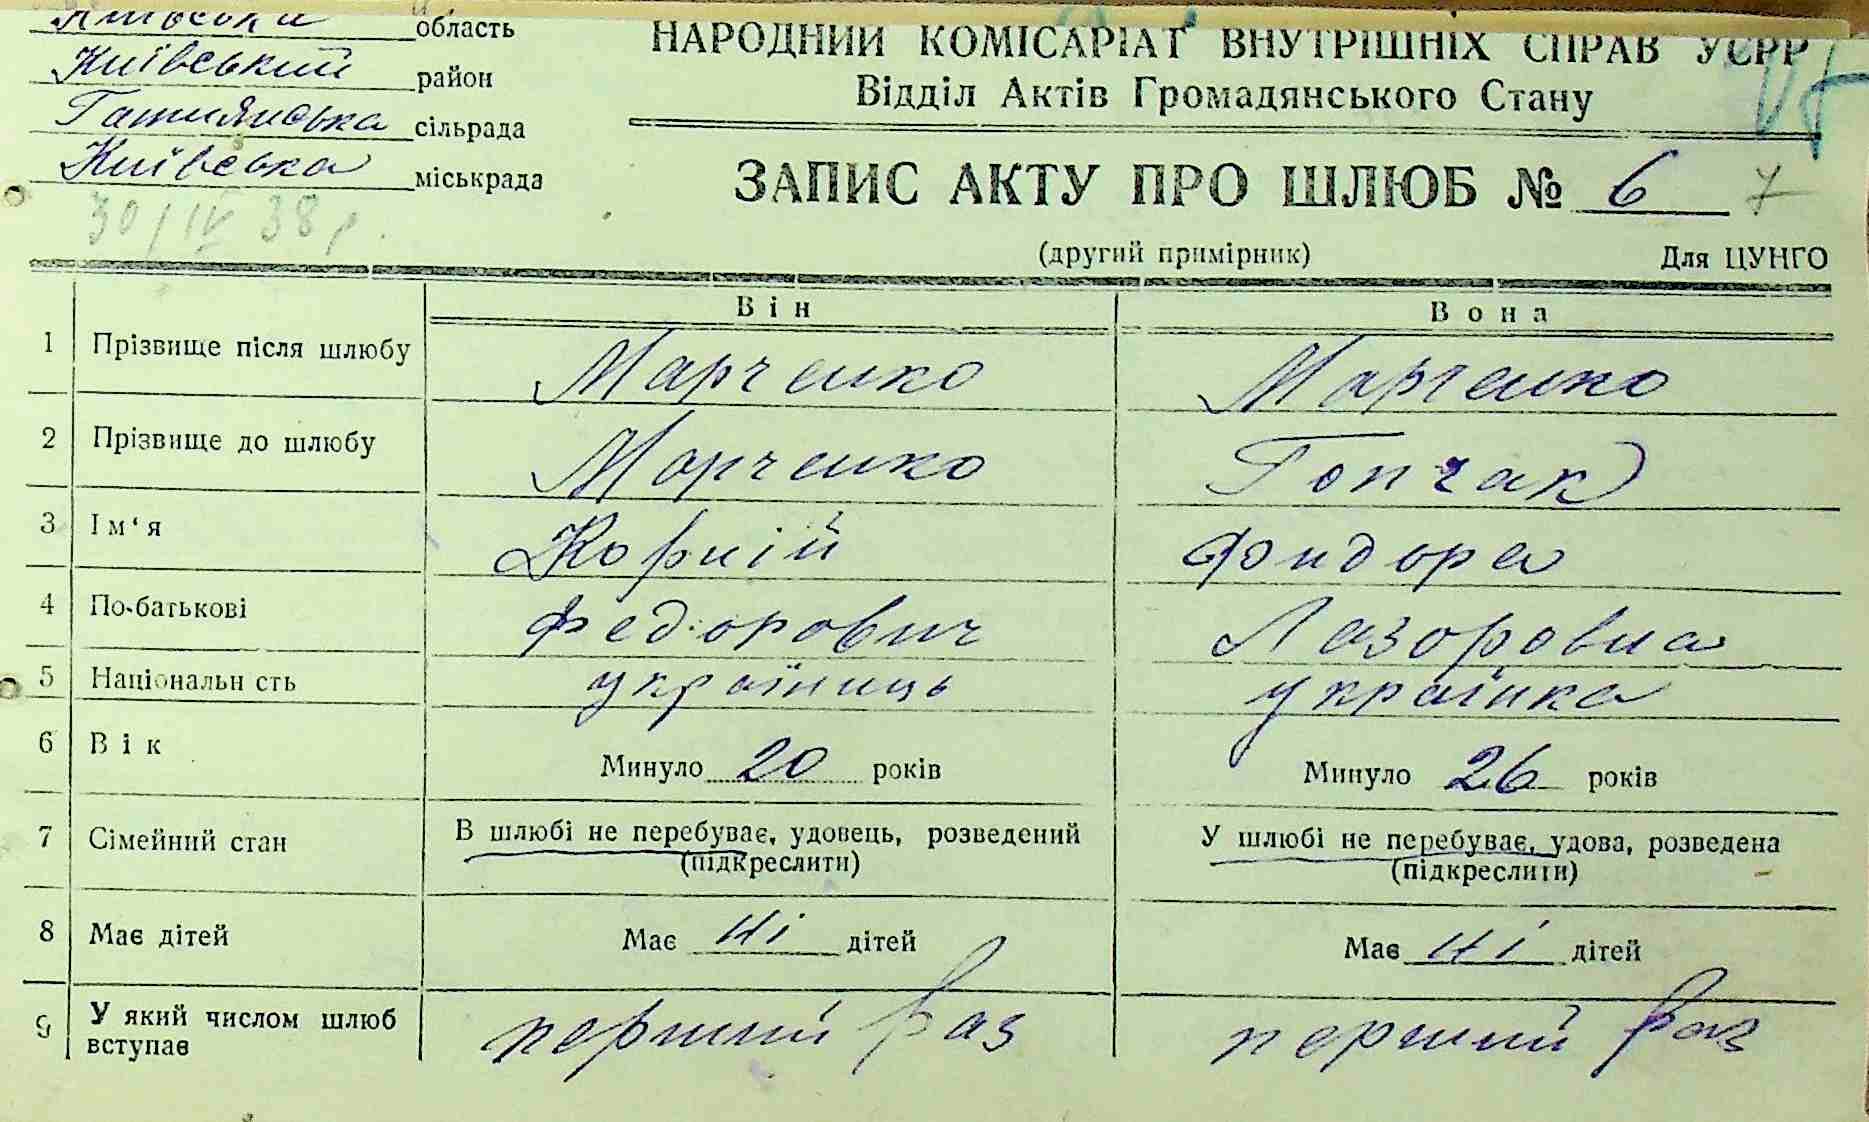 Київська область
Київський район
Гатнянська сільрада
Київська міськрада
30/IV 38 р.
НАРОДНИЙ КОМІСАРІАТ ВНУТРІШНІХ СПРАВ УСРР
Відділ Актів Громадянського Стану
ЗАПИС АКТУ ПРО ШЛЮБ № 6 7
(другий примірник) Для ЦУНГО
Він Вона
1 Прізвище після шлюбу Марченко Марченко
2 Прізвище до шлюбу Марченко Гончак
3 Ім'я Корній Фидора
4 По-батькові Федорович Лазоровна
5 Національн сть україниць українка
6 Вік Минуло 20 років Минуло 26 років
7 Сімейний стан В шлюбі не перебуває, удовець, розведений У шлюбі не перебуває, удова, розведена
(підкреслити) (підкреслити)
8 Має дітей Має ні дітей Має ні дітей
9 У який числом шлюб вступає перший раз перший раз